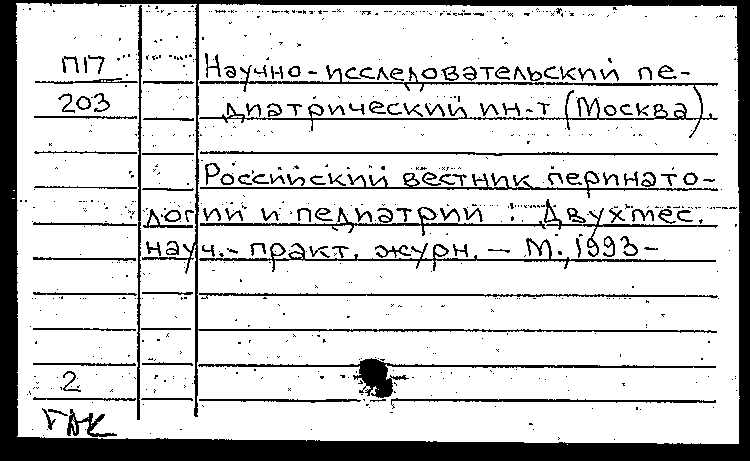 П17
203
Научно-исследовательский пе-
диатрический ин-т (Москва).
Российский вестник перинато-
логии и педиатрии : Двухмес.
науч.-практ. журн. — М., 1993-
2
ГАК